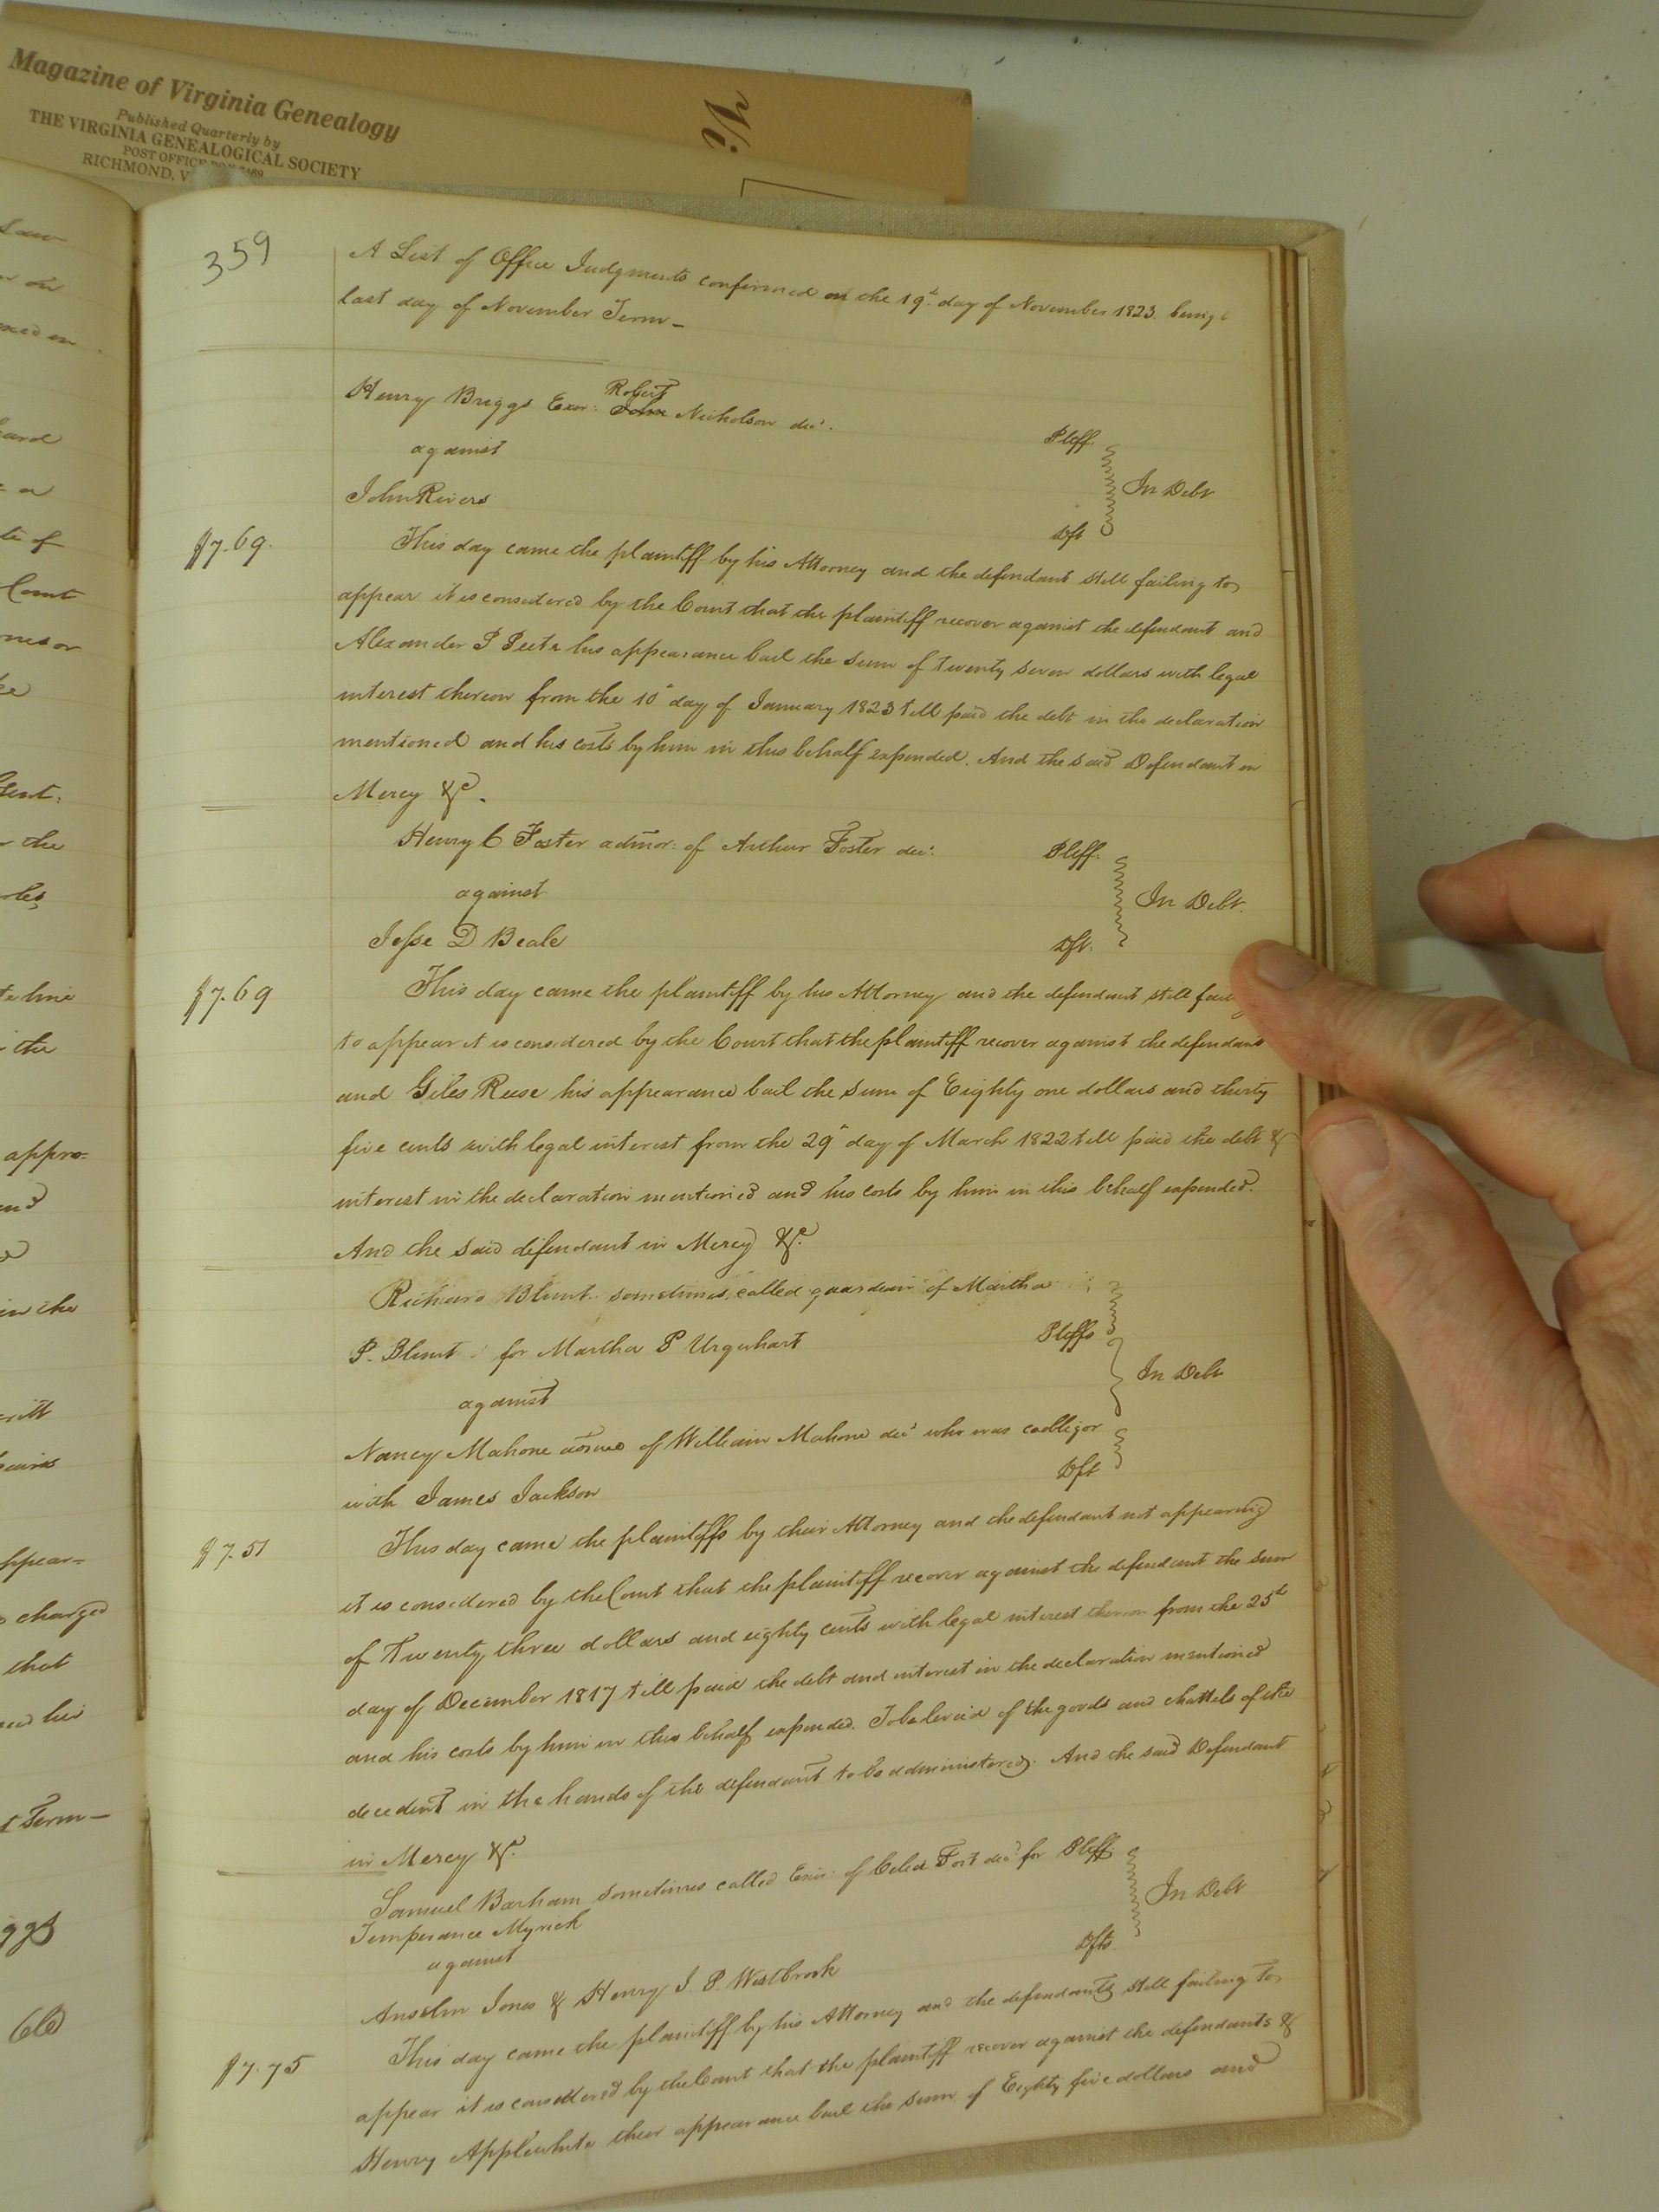 Magazine of Virginia Genealogy
Published Quarterly by
THE VIRGINIA GENEALOGICAL SOCIETY
POST OFFICE
RICHMOND, V
359
A List of Office Judgments confirmed on the 19th day of November 1823. being
last day of November Term—
Henry Briggs Exor: Robert John Nicholson decd.
Pltff.
against
In Debt
John Rivers
Dft
$7.69.
This day came the plaintiff by his Attorney and the defendant still failing to
appear it is considered by the Court that the plaintiff recover against the defendant and
Alexander P Peete his appearance bail the sum of twenty seven dollars with legal
interest thereon from the 10th day of January 1823 till paid the debt in the declaration
mentioned and his costs by him in this behalf expended. And the said Defendant in
Mercy &c.
Henry C Foster admor: of Arthur Foster decd.
Pltff.
against
In Debt.
Jesse D Beale
Dft.
$7.69
This day came the plaintiff by his Attorney and the defendant still failing
to appear it is considered by the Court that the plaintiff recover against the defendant
and Giles Reese his appearance bail the sum of Eighty one dollars and thirty
five cents with legal interest from the 29th day of March 1822 till paid the debt &
interest in the declaration mentioned and his costs by him in this behalf expended.
And the said defendant in Mercy &c.
Richard Blunt sometimes called guardian of Martha
P. Blunt for Martha P Urquhart
Pltffs
against
In Debt
Nancy Mahone of William Mahone decd who was coobligor
with James Jackson
Dft
$7.51
This day came the plaintiffs by their Attorney and the defendant not appearing
it is considered by the Court that the plaintiff recover against the defendant the sum
of Twenty three dollars and eighty cents with legal interest thereon from the 25th
day of December 1817 till paid the debt and interest in the declaration mentioned
and his costs by him in this behalf expended. To be levied of the goods and chattels of the
decedent in the hands of the defendant to be administered. And the said Defendant
in Mercy &c.
Samuel Barham sometimes called Exor: of Celia Fort decd for Pltff.
Temperance Myrick
In Debt
against
Dfts.
Anselm Jones & Henry J. P. Westbrook
$7.75
This day came the plaintiff by his Attorney and the defendants still failing to
appear it is considered by the Court that the plaintiff recover against the defendants &
Henry Applewhite their appearance bail the sum of Eighty five dollars and